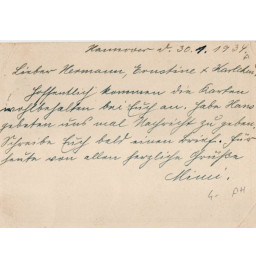 Hannover d. 30.1.1934.
Lieber Hermann, Ernstine &
Hoffentlich kommen die Karten
wohlbehalten bei Euch an. Habe Hans
gebeten uns mal Nachricht zu geben.
Schreibe Euch bald einen Brief. Für
heute von allen herzliche Grüße
Mimi.